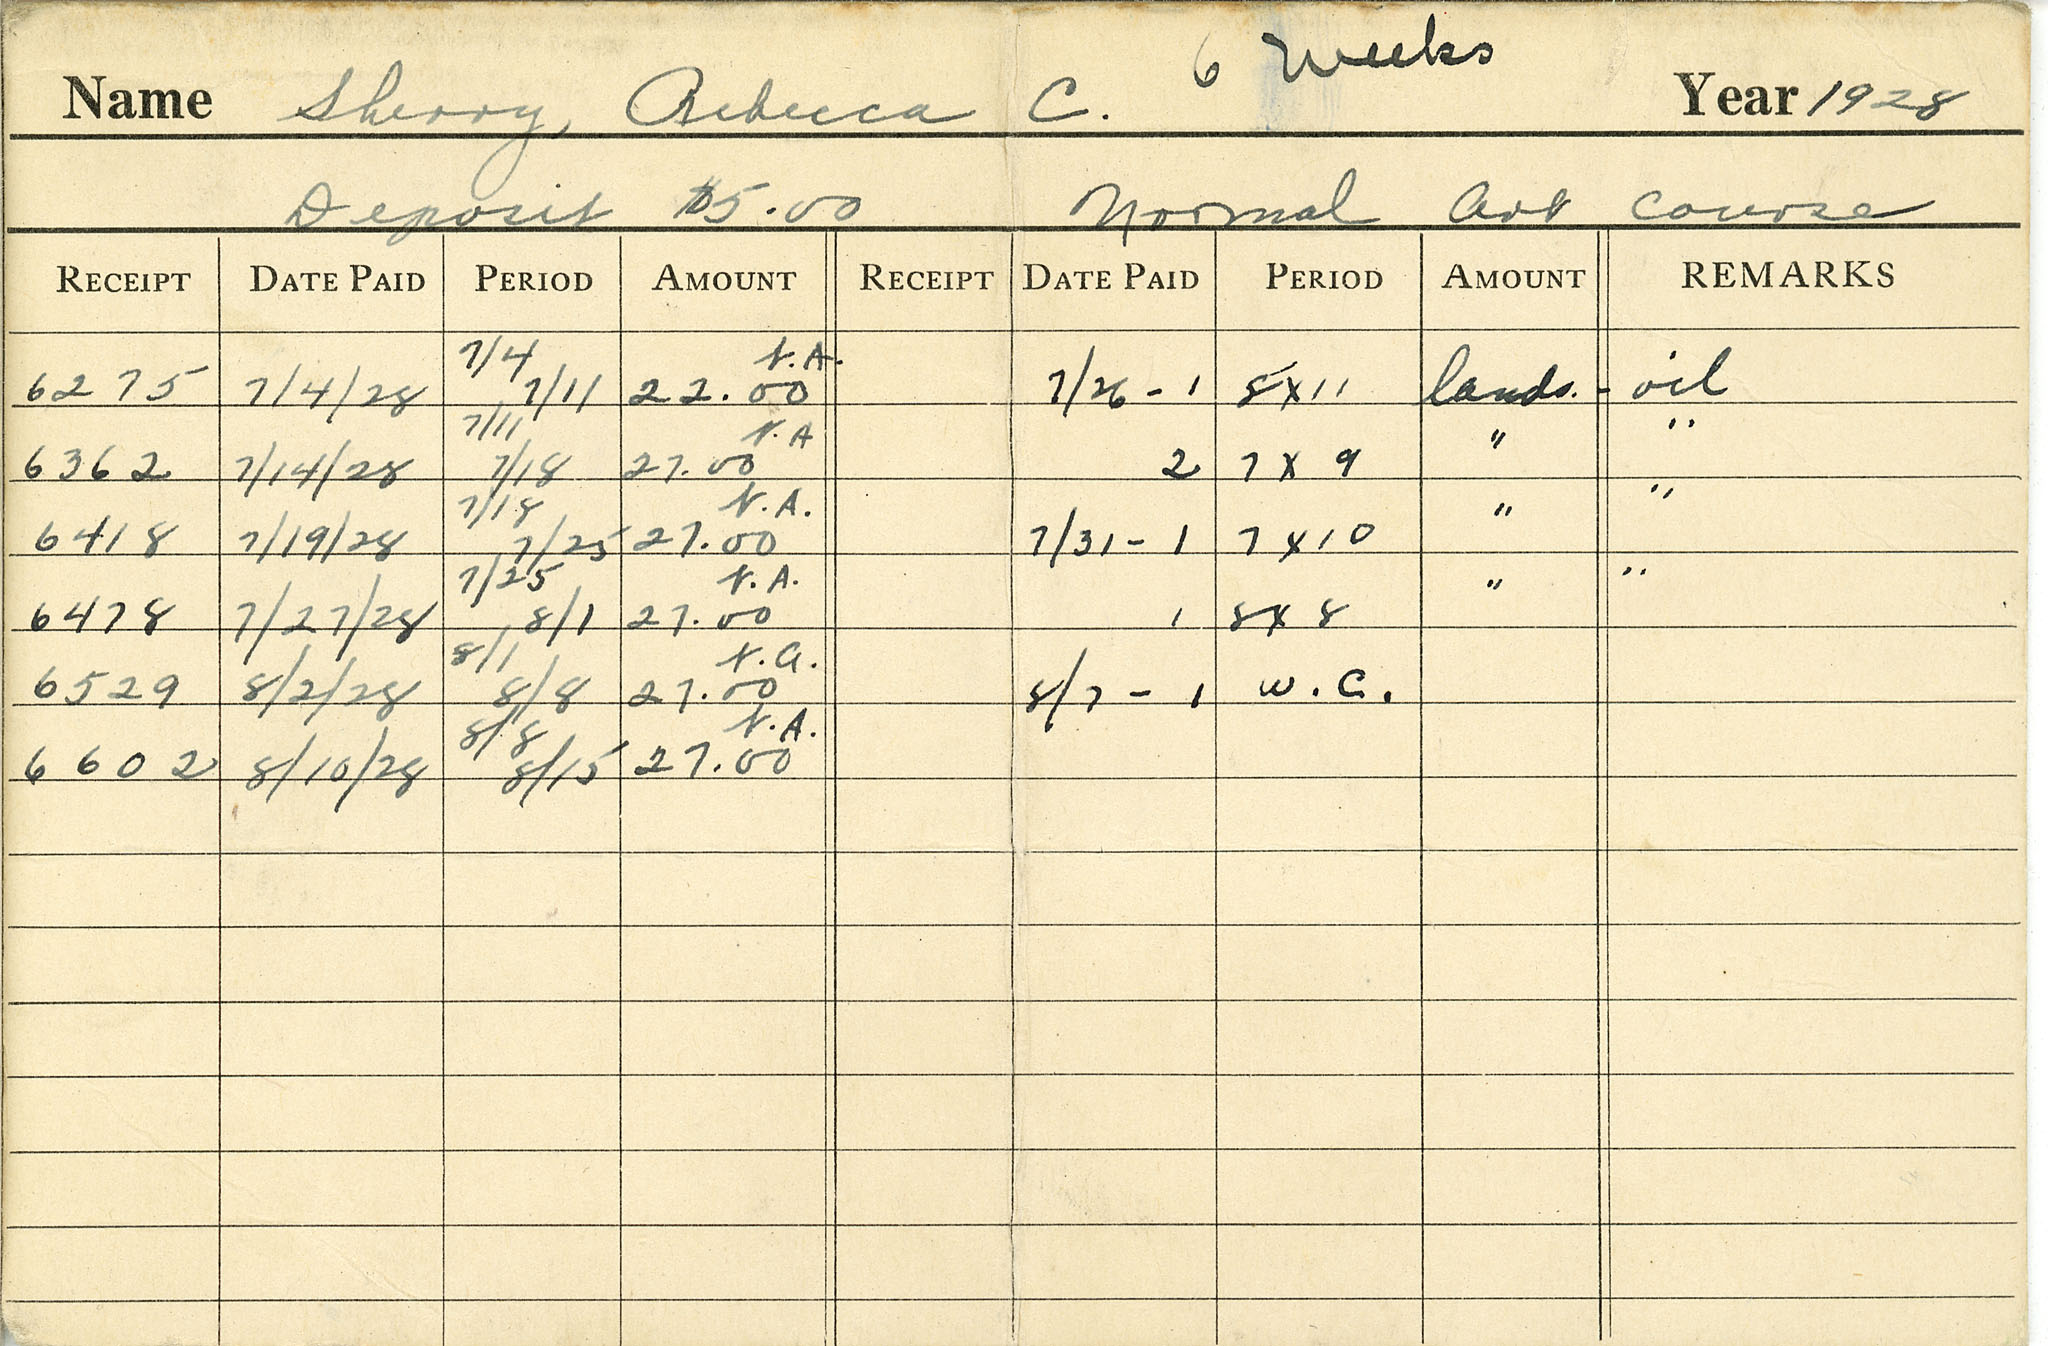 6 Weeks
Name Sherry, Rebecca C. Year 1928
Deposit $5.00 Normal Art Course
RECEIPT DATE PAID PERIOD AMOUNT RECEIPT DATE PAID PERIOD AMOUNT REMARKS
7/4 N.A.
6275 7/4/28 7/11 22.00 7/26 - 1 8 x 11 lands. - oil
7/11 N.A " "
6362 7/14/28 7/18 27.00 2 7 x 9
7/18 N.A. " "
6418 7/19/28 7/25 27.00 7/31 - 1 7 x 10
7/25 N.A. " "
6478 7/27/28 8/1 27.00 1 8 x 8
8/1 N.A.
6529 8/2/28 8/8 27.00 8/7 - 1 W.C.
8/8 N.A.
6602 8/10/28 8/15 27.00